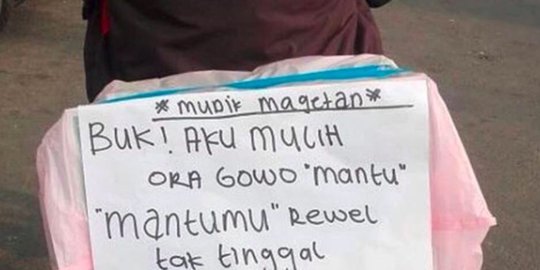 *mudik magetan*
BUK! AKU MULIH
ORA GOWO "mantu"
"mantumu" Rewel
tak tinggal